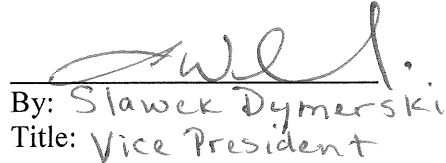 By: Slawek Dymerski
Title: Vice President